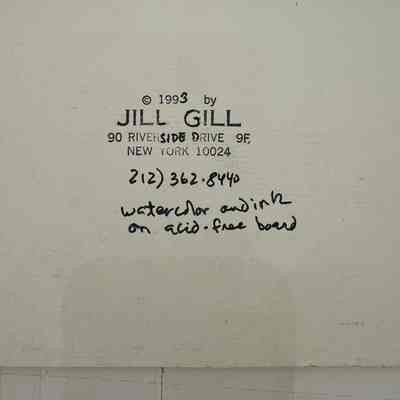 © 1993 by
JILL GILL
90 RIVERSIDE DRIVE 9F,
NEW YORK 10024
212) 362-8440
watercolor and ink
on acid-free board